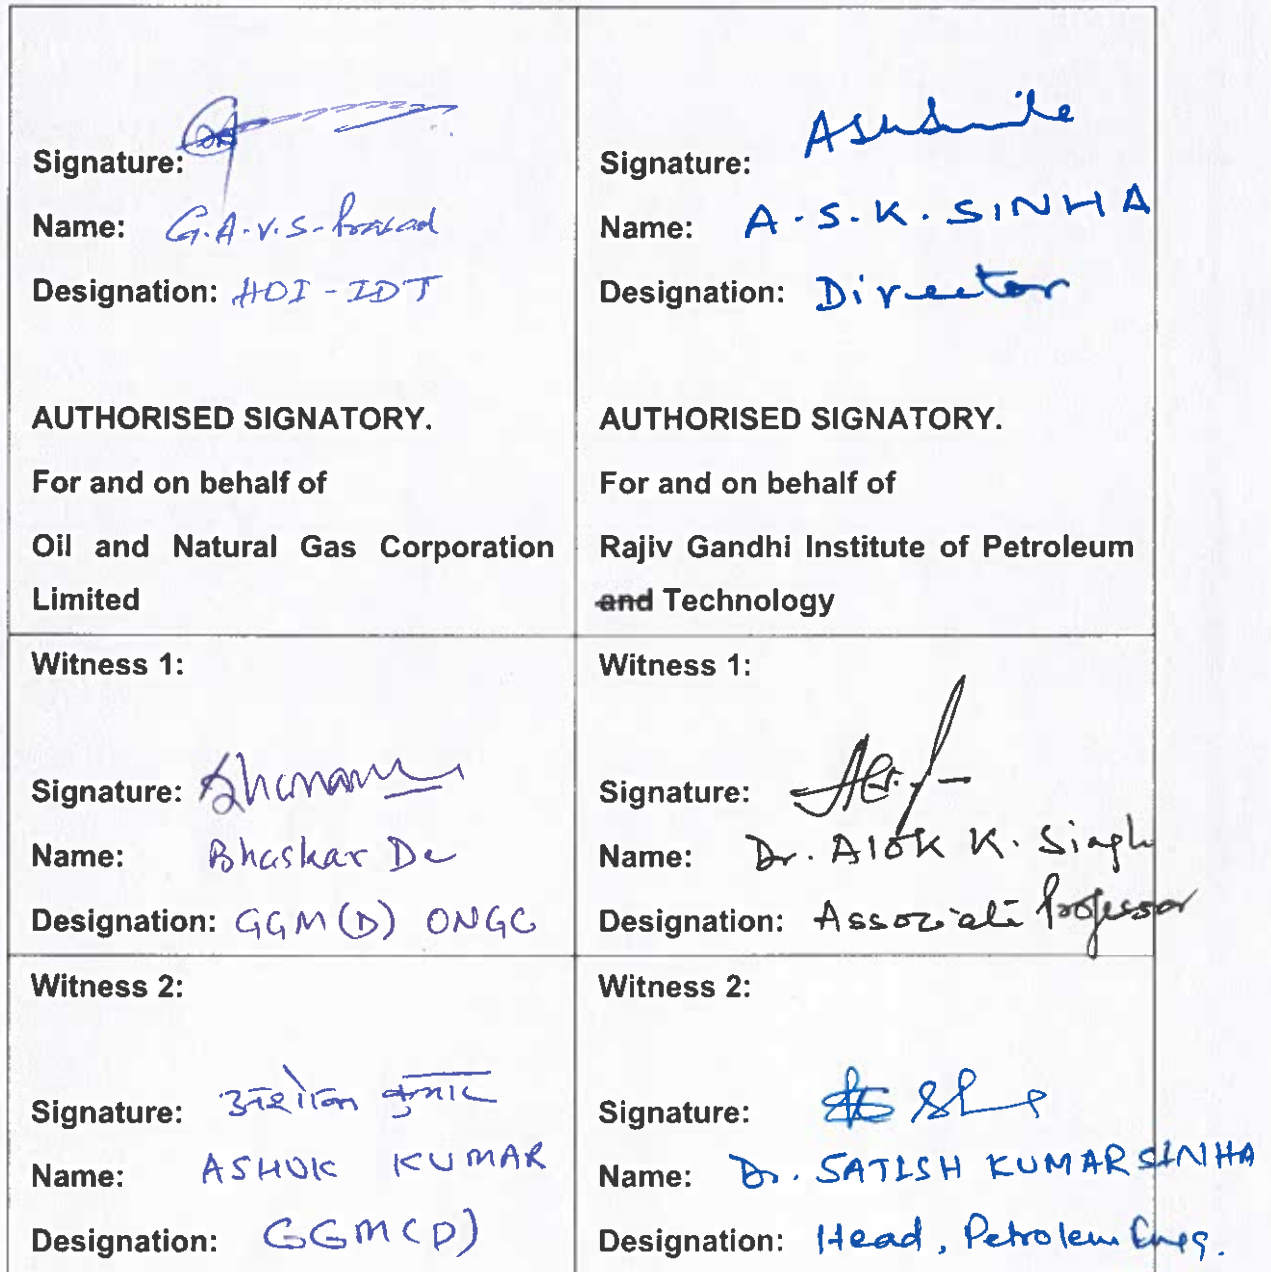 Signature:
Name: G.A.V.S. Prasad
Designation: HOI - IDT
AUTHORISED SIGNATORY.
For and on behalf of
Oil and Natural Gas Corporation
Limited
Signature:
Name: A.S.K. SINHA
Designation: Director
AUTHORISED SIGNATORY.
For and on behalf of
Rajiv Gandhi Institute of Petroleum
and Technology
Witness 1:
Signature:
Name: Bhaskar De
Designation: GGM (D) ONGC
Witness 1:
Signature:
Name: Dr. Alok K. Singh
Designation: Associate Professor
Witness 2:
Signature: अशोक कुमार
Name: ASHOK KUMAR
Designation: GGM(P)
Witness 2:
Signature:
Name: Dr. SATISH KUMAR SINHA
Designation: Head, Petroleum Engg.